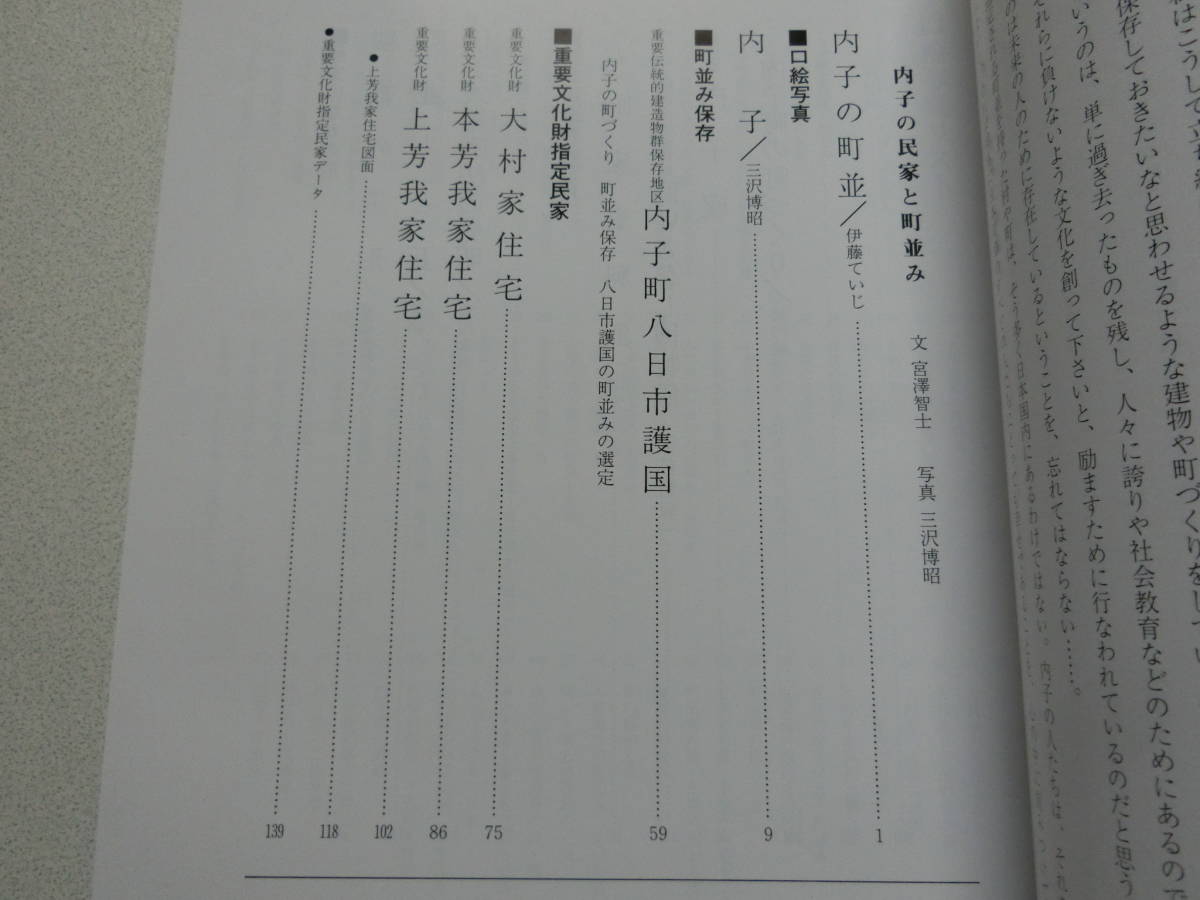 はこうして
保存しておきたいなと思わせるような建物や町づくりをしてい
いうのは、単に過ぎ去ったものを残し、人々に誇りや社会教育などのためにあるので
れらに負けないような文化を創って下さいと、励ますために行なわれているのだと思う
のは未来の人のために存在しているということを、忘れてはならない……。
村や町は、そう多く日本国内にあるわけではない。内子の人たちは、それ
内子の民家と町並み 文 宮澤智士 写真 三沢博昭
内子の町並/伊藤ていじ……1
■口絵写真
内 子/三沢博昭……9
■町並み保存
重要伝統的建造物群保存地区 内子町八日市護国……59
内子の町づくり 町並み保存 八日市護国の町並みの選定
■重要文化財指定民家
重要文化財 大村家住宅……75
重要文化財 本芳我家住宅……86
重要文化財 上芳我家住宅……102
●上芳我家住宅図面……118
●重要文化財指定民家データ……139